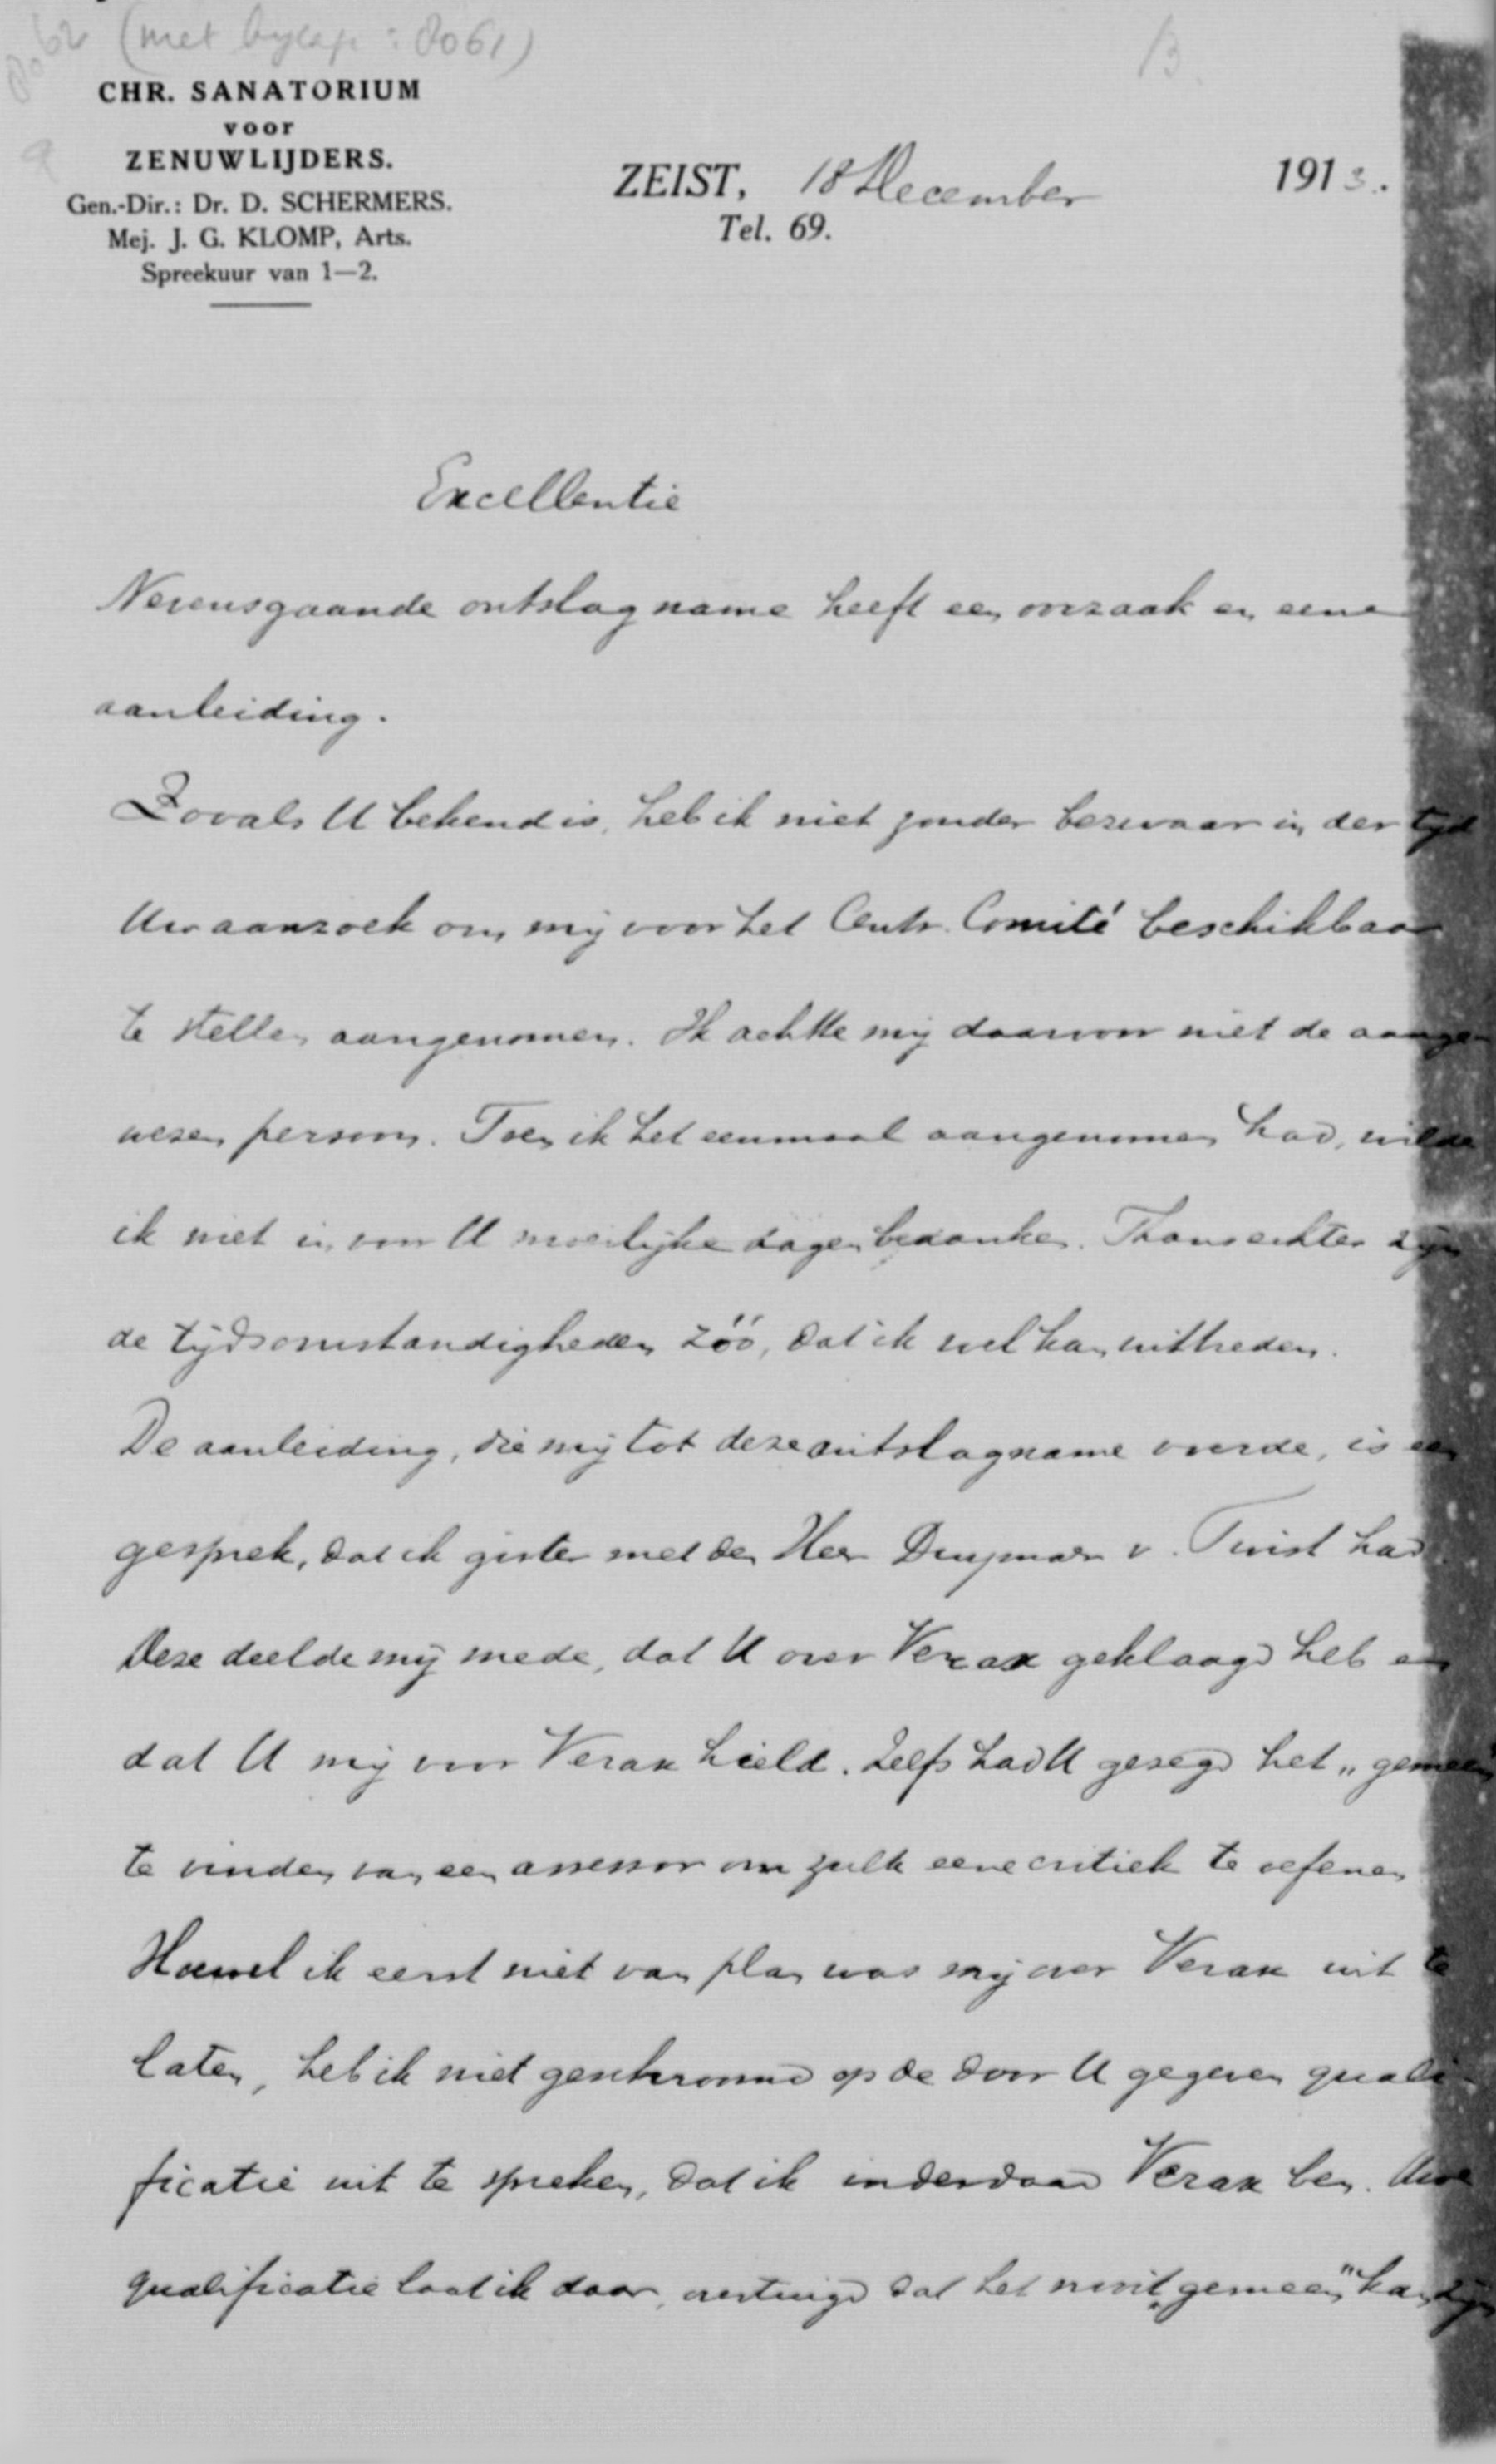 (met bylage : 8061)
CHR. SANATORIUM
voor
ZENUWLIJDERS.
Gen.-Dir.: Dr. D. SCHERMERS.
Mej. J. G. KLOMP, Arts.
Spreekuur van 1—2.
ZEIST, 18 December 1913.
Tel. 69.
Excellentie
Nevensgaande ontslagname heeft een oorzaak en eene
aanleiding.
Zooals U bekend is, heb ik niet zonder bezwaar in der tijd
Uw aanzoek om mij voor het Centr. Comité beschikbaar
te stellen aangenomen. Ik achtte mij daarvoor niet de aange-
wezen persoon. Toen ik het eenmaal aangenomen had, wilde
ik niet in voor U moeilijke dagen bedanken. Thans echter zijn
de tijdsomstandigheden zóó, dat ik wel kan uittreden.
De aanleiding, die mij tot deze ontslagname voerde, is een
gesprek, dat ik gister met den Heer Duymaer v. Twist had.
Deze deelde mij mede, dat U over Verax geklaagd heb en
dat U mij voor Verax hield. Zelfs had U gezegd het „gemeen"
te vinden van een assessor om zulk eene critiek te oefenen
Hoewel ik eerst niet van plan was mij over Verax uit te
laten, heb ik niet geschroomd op de door U gegeven quali-
ficatie uit te spreken, dat ik inderdaad Verax ben. Uwe
qualificatie laat ik daar, overtuigd dat het nooit „gemeen" kan zijn